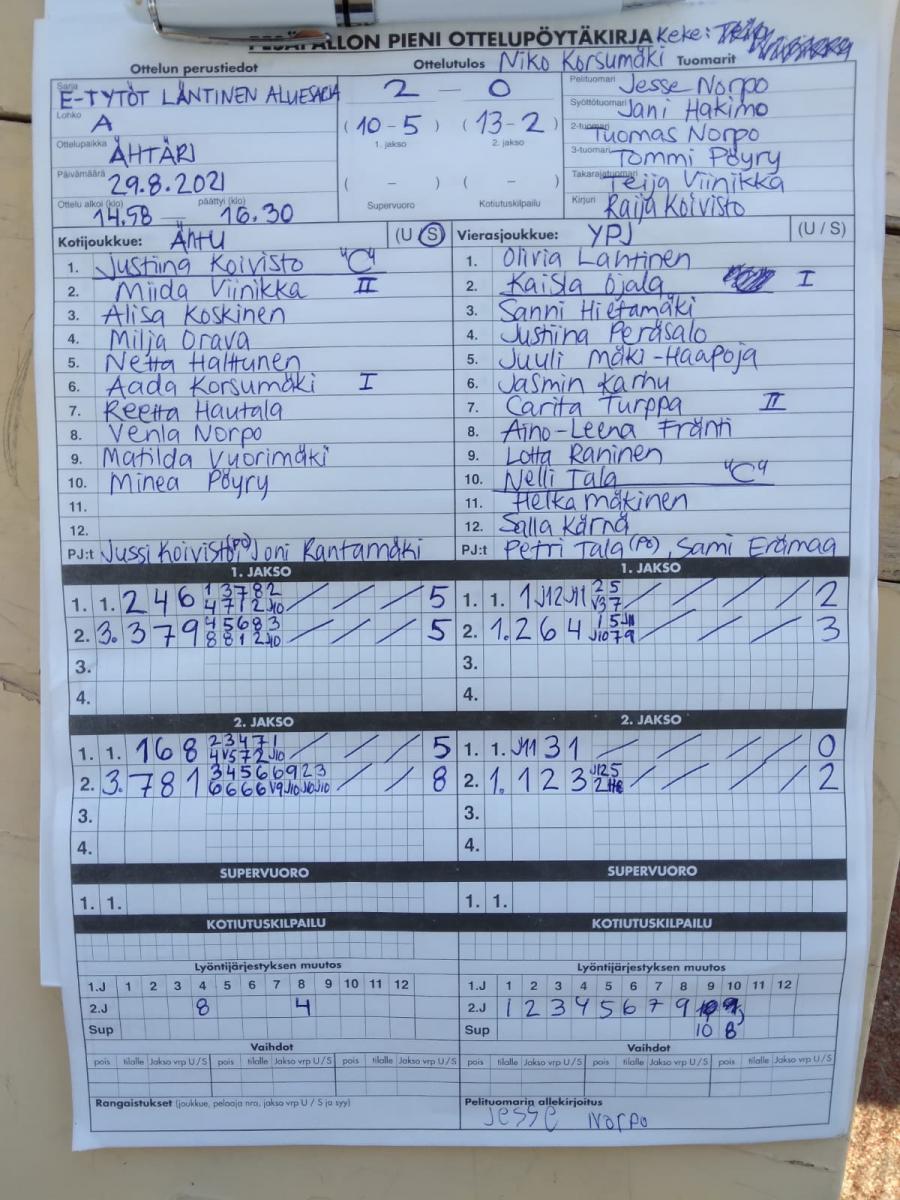 PESÄPALLON PIENI OTTELUPÖYTÄKIRJA Keke:
Ottelun perustiedot Ottelutulos Niko Korsumäki Tuomarit
Sarja E-TYTÖT LÄNTINEN ALUESARJA
Lohko A
Ottelupaikka ÄHTÄRI
Päivämäärä 29.8.2021
Ottelu alkoi (klo) 14.58 päättyi (klo) 16.30
2 - 0
(10-5) (13-2)
1. jakso 2. jakso
( - ) ( - )
Supervuoro Kotiutuskilpailu
Pelituomari Jesse Norpo
Syöttötuomari Jani Hakimo
2-tuomari Tuomas Norpo
3-tuomari Tommi Pöyry
Takarajatuomari Teija Viinikka
Kirjuri Raija Koivisto
Kotijoukkue: ÄhtU (U S)
1. Justiina Koivisto "C"
2. Miida Viinikka II
3. Alisa Koskinen
4. Milja Orava
5. Netta Halttunen
6. Aada Korsumäki I
7. Reetta Hautala
8. Venla Norpo
9. Matilda Vuorimäki
10. Minea Pöyry
11.
12.
PJ:t Jussi Koivisto (PJ) Joni Rantamäki
Vierasjoukkue: YPJ (U / S)
1. Olivia Lahtinen
2. Kaisla Ojala I
3. Sanni Hietamäki
4. Justiina Peräsalo
5. Juuli Mäki-Haapoja
6. Jasmin Karhu
7. Carita Turppa II
8. Aino-Leena Fränti
9. Lotta Raninen
10. Nelli Tala "C"
11. Helka Mäkinen
12. Salla Kärnä
PJ:t Petri Tala (PJ), Sami Erämaa
1. JAKSO 1. JAKSO
1. 1. 2 4 6 1 3 7 8 2 / / / 5
4 7 1 2 J10
2. 3. 3 7 9 4 5 6 8 3 / / / 5
8 8 1 2 J10
3.
4.
1. 1. 1 J12 J11 2 5 / / / / 2
V3 7
2. 1. 2 6 4 1 5 J11 / / / 3
J10 7 9
3.
4.
2. JAKSO 2. JAKSO
1. 1. 1 6 8 2 3 4 7 1 / / / 5
4 V5 7 2 J10
2. 3. 7 8 1 3 4 5 6 6 9 2 3 / / / 8
6 6 6 6 V9 J10 J10 J10
3.
4.
1. 1. J11 3 1 / / / / 0
2. 1. 1 2 3 J12 5 / / / / 2
3.
4.
SUPERVUORO SUPERVUORO
1. 1. 1. 1.
KOTIUTUSKILPAILU KOTIUTUSKILPAILU
Lyöntijärjestyksen muutos Lyöntijärjestyksen muutos
1.J 1 2 3 4 5 6 7 8 9 10 11 12 1.J 1 2 3 4 5 6 7 8 9 10 11 12
2.J 8 4 2.J 1 2 3 4 5 6 7 9
Sup Sup 10 8
Vaihdot Vaihdot
pois tilalle Jakso vrp U / S pois tilalle Jakso vrp U / S pois tilalle Jakso vrp U / S pois tilalle Jakso vrp U / S pois tilalle Jakso vrp U / S pois tilalle Jakso vrp U / S
Rangaistukset (joukkue, pelaaja nro, jakso vrp U / S ja syy) Pelituomarin allekirjoitus
Jesse Norpo